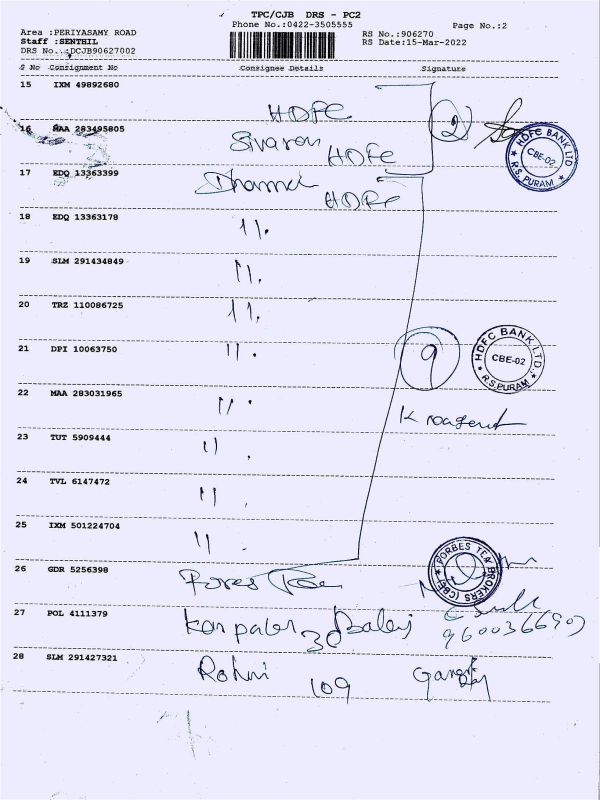 TPC/CJB DRS - PC2
Phone No.:0422-3505555
Page No.:2
Area :PERIYASAMY ROAD
Staff :SENTHIL
DRS No.:DCJB90627002
RS No.:906270
RS Date:15-Mar-2022
S No Consignment No Consignee Details Signature
15 IXM 49892680
HDFC
2
16 MAA 283495805
HDFC
HDFC BANK LTD
CBE-02
R.S. PURAM
17 EDQ 13363399
HDFC
18 EDQ 13363178
11.
19 SLM 291434849
11.
20 TRZ 110086725
11.
21 DPI 10063750
11.
9
HDFC BANK LTD.,
CBE-02
R.S. PURAM
22 MAA 283031965
11.
23 TUT 5909444
11 .
24 TVL 6147472
11 .
25 IXM 501224704
11 .
26 GDR 5256398
FORBES TEA BROKERS (CBE)
27 POL 4111379
30
28 SLM 291427321
Rohini 109